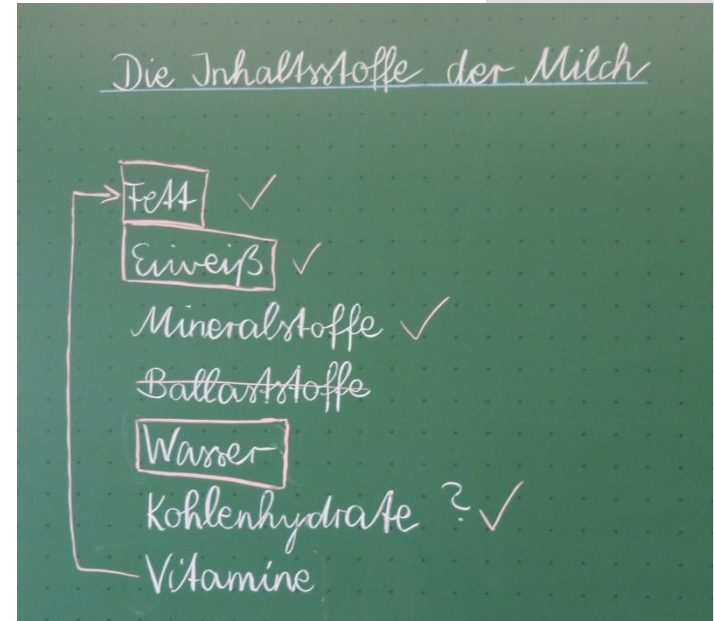 Die Inhaltsstoffe der Milch
Fett ✓
Eiweiß ✓
Mineralstoffe ✓
Ballaststoffe
Wasser
Kohlenhydrate ? ✓
Vitamine